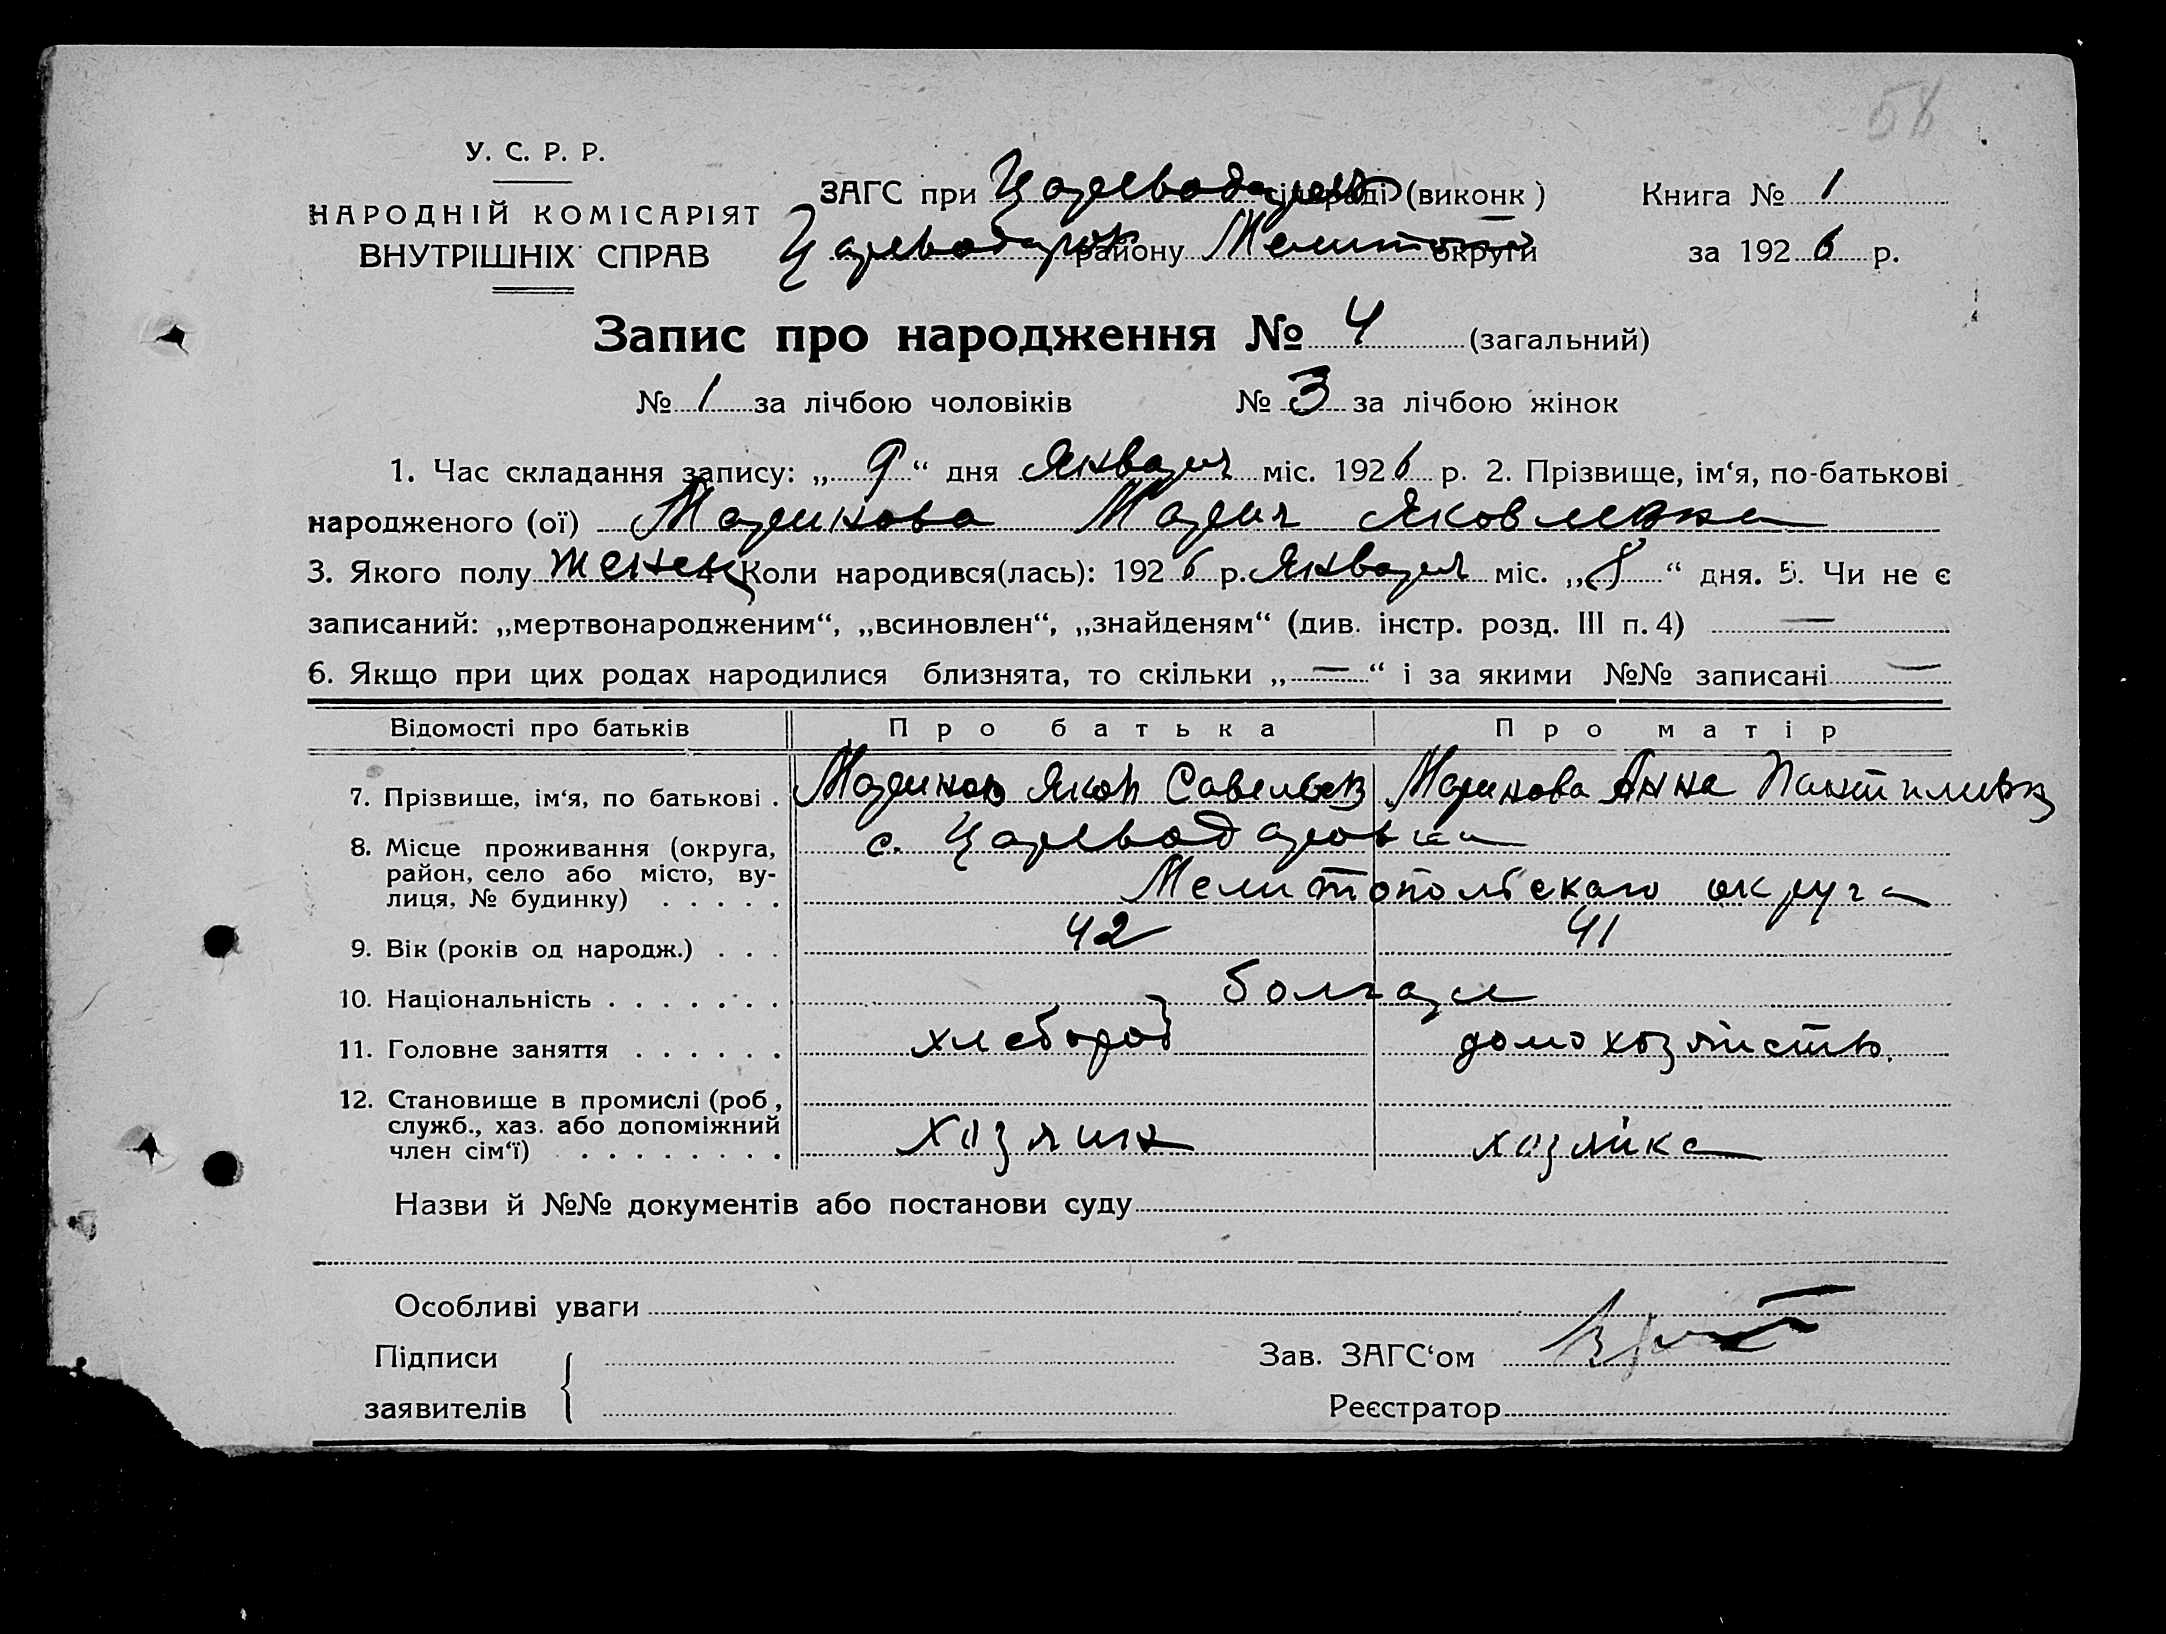 58
У. С. Р. Р.
НАРОДНІЙ КОМІСАРІЯТ
ВНУТРІШНІХ СПРАВ
ЗАГС при Царевода сільраді (виконк)
Цареводаров району Мелитопол округи
Книга № 1
за 1926 р.
Запис про народження № 4 (загальний)
№ 1 за лічбою чоловіків № 3 за лічбою жінок
1. Час складання запису: „9“ дня Января міс. 1926 р. 2. Прізвище, ім‘я, по-батькові
народженого (ої) Маринова Мария Яковлевна
3. Якого полу женск 4. Коли народився(лась): 1926 р. Января міс. „8“ дня. 5. Чи не є
записаний: „мертвонародженим“, „всиновлен“, „знайденям“ (див. інстр. розд. III п. 4) —
6. Якщо при цих родах народилися близнята, то скільки „—“ і за якими №№ записані —
Відомості про батьків Про батька Про матір
7. Прізвище, ім‘я, по батькові . Маринов Яков Савельев Маринова Анна
8. Місце проживання (округа, с. Цареводаровка
район, село або місто, ву- Мелитопольскаго округа
лиця, № будинку) . . . . .
9. Вік (років од народж.) . . . 42 41
10. Національність . . . . . . . болгаре
11. Головне заняття . . . . . . хлебороб домохозяйств.
12. Становище в промислі (роб.,
служб., хаз. або допоміжний хозяин хозяйка
член сім‘ї) . . . . . . . .
Назви й №№ документів або постанови суду
Особливі уваги
Підписи Зав. ЗАГС‘ом
заявителів Реєстратор